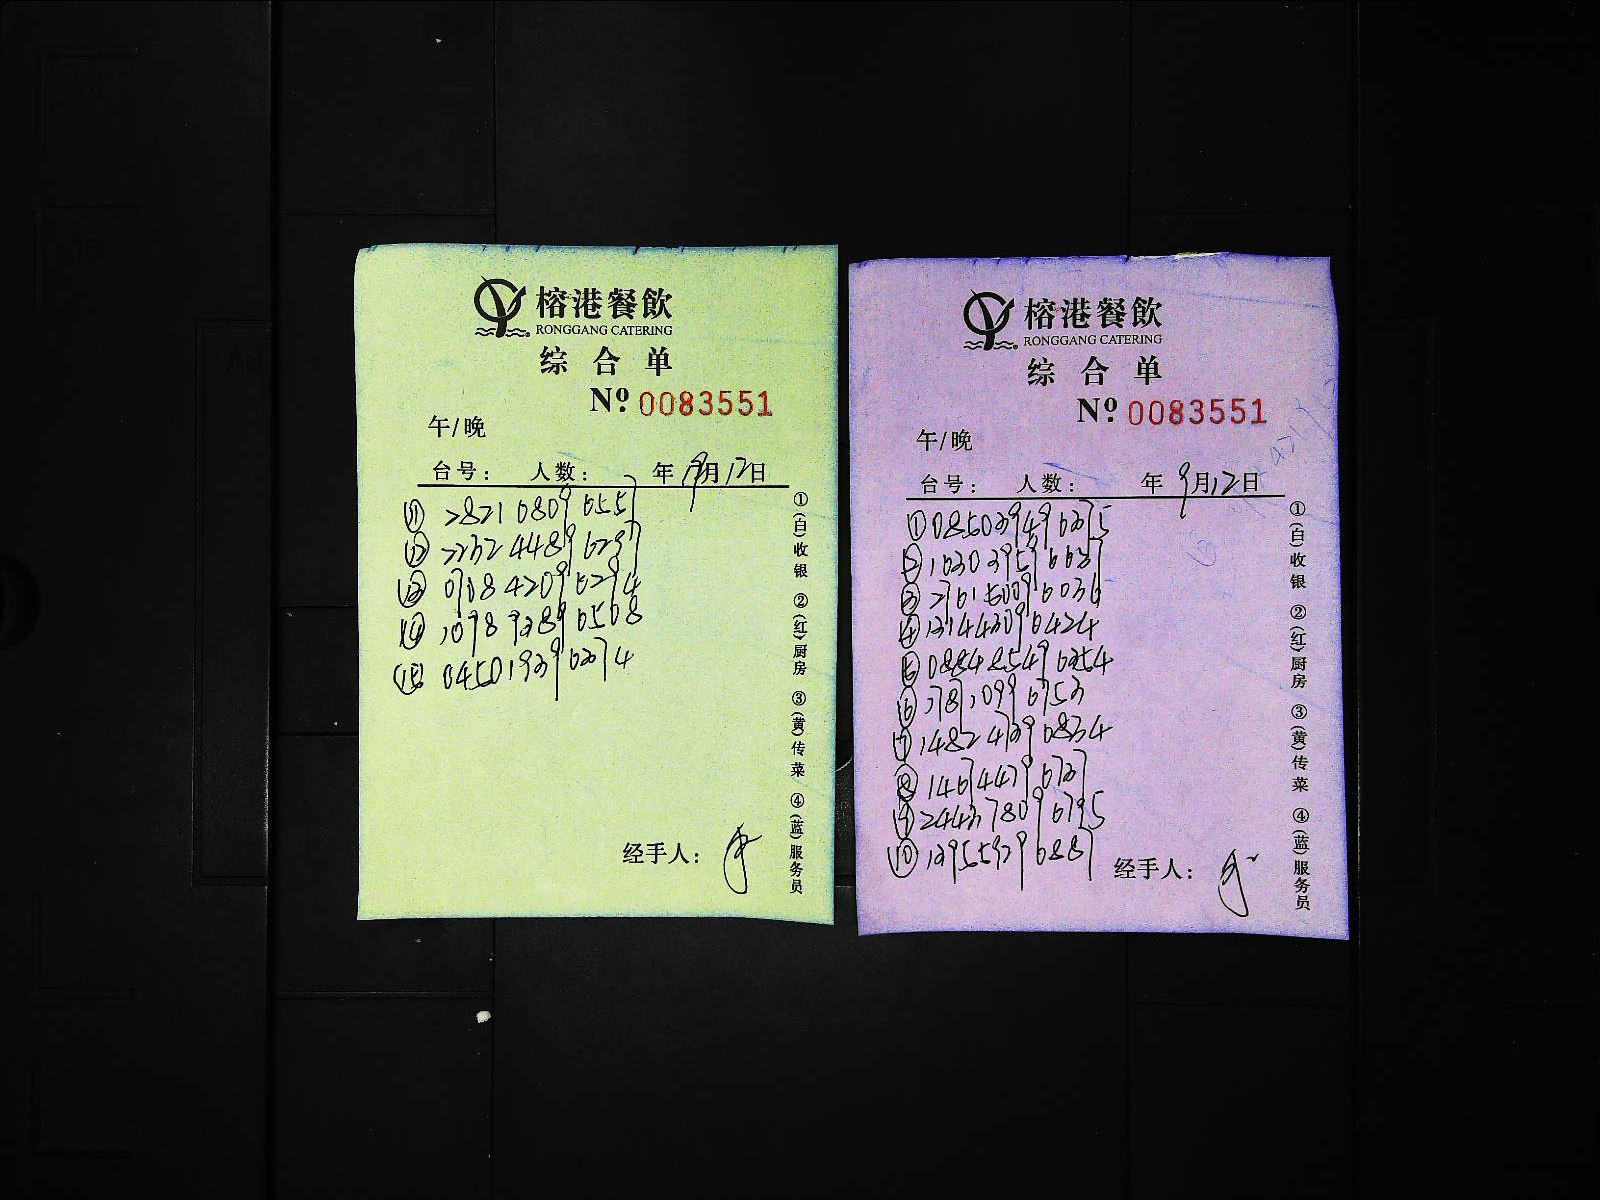 榕港餐飲
RONGGANG CATERING
综合单
Nº 0083551
午/晚
台号： 人数： 年 9月12日
⑪ 282108096557
⑫ 223244896297
⑬ 070842096294
⑭ 109892896508
⑮ 045019396374
经手人：
①(白)收银 ②(红)厨房 ③(黄)传菜 ④(蓝)服务员
榕港餐飲
RONGGANG CATERING
综合单
Nº 0083551
午/晚
台号： 人数： 年 9月12日
① 085039496375
② 163039596637
③ 276150096036
④ 131443096424
⑤ 088485496354
⑥ 278710996753
⑦ 148247390834
⑧ 146744796737
⑨ 244378096795
⑩ 139559796887
经手人：
①(白)收银 ②(红)厨房 ③(黄)传菜 ④(蓝)服务员